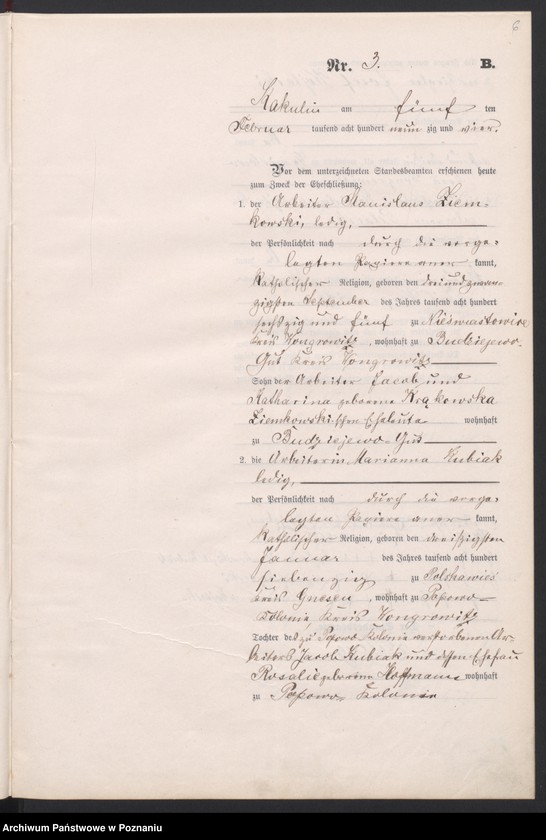 6
Nr. 3. B.
Kakulin am fünf ten
Februar tausend acht hundert neun zig und vier.
Vor dem unterzeichneten Standesbeamten erschienen heute
zum Zweck der Eheschließung:
1. der Arbeiter Stanislaus Ziem-
kowski, ledig,
der Persönlichkeit nach durch die vorge-
legten Papiere aner kannt,
katholischer Religion, geboren den dreiundzwan-
zigsten September des Jahres tausend acht hundert
sechszig und fünf zu Nieswiastowice
Kreis Wongrowitz, wohnhaft zu Budziejewo-
Gut Kreis Wongrowitz
Sohn der Arbeiter Jacob und
Katharina geborene Krąkowska
Ziemkowski'schen Eheleute wohnhaft
zu Budziejewo-Gut
2. die Arbeiterin Marianna Kubiak
ledig,
der Persönlichkeit nach durch die vorge-
legten Papiere aner kannt,
katholischer Religion, geboren den dreißigsten
Januar des Jahres tausend acht hundert
siebenzig zu
Kreis Gnesen, wohnhaft zu Popowo-
Kolonie Kreis Wongrowitz
Tochter des zu Popowo Kolonie verstorbenen Ar-
beiters Jacob Kubiak und dessen Ehefrau
Rosalie geborene Hoffmann wohnhaft
zu Popowo Kolonie
Archiwum Państwowe w Poznaniu